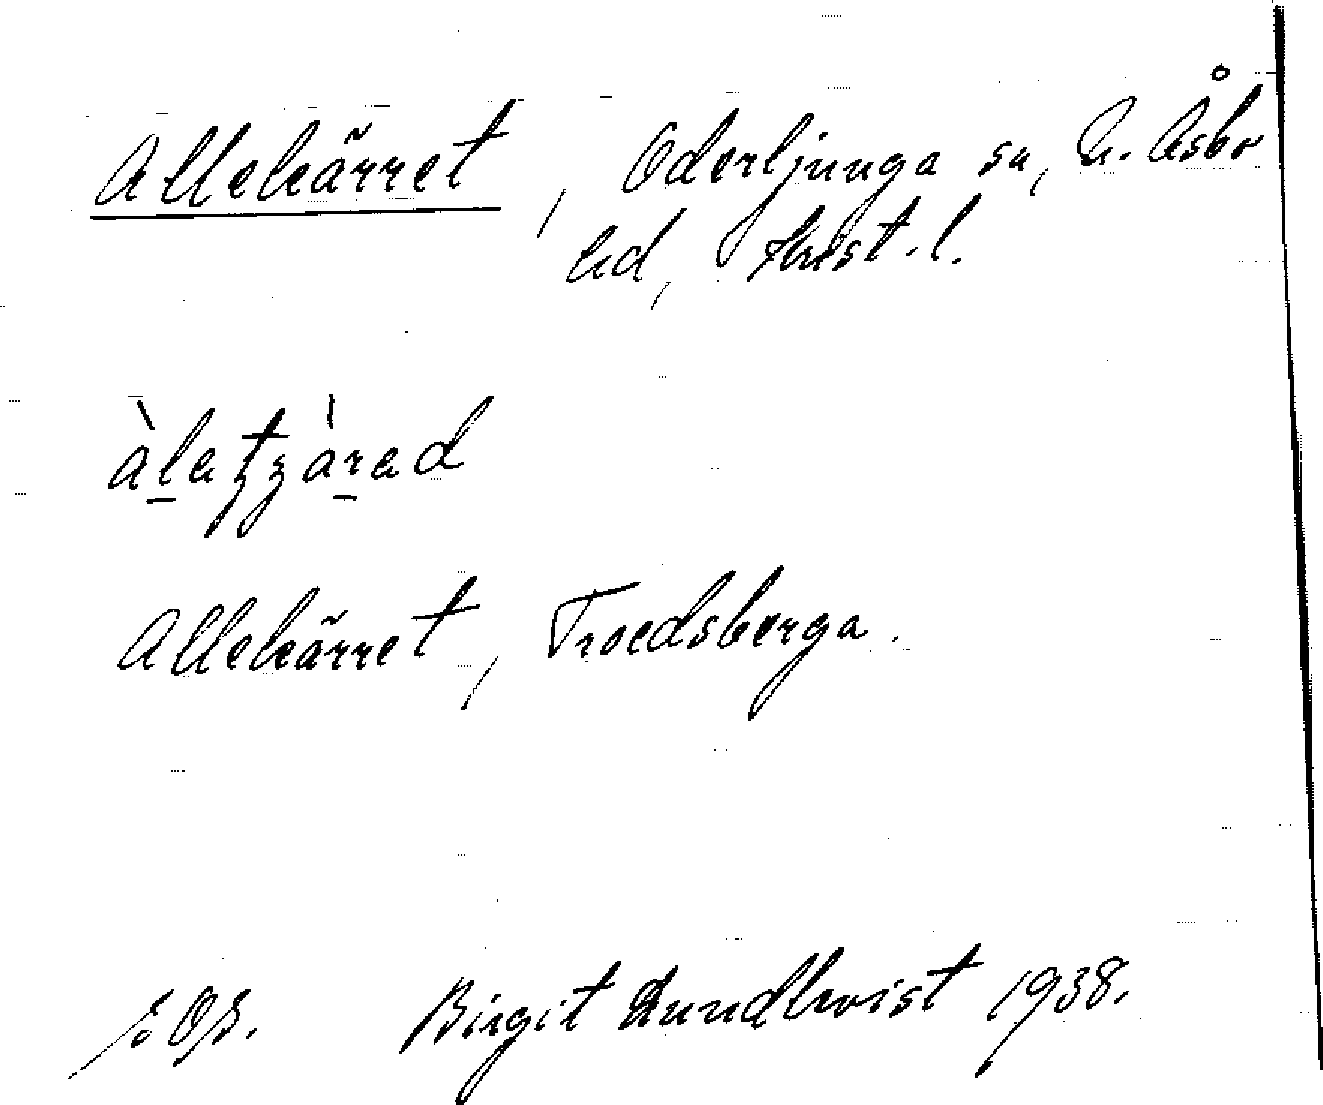 Allekärret, Oderljunga sn, N. Åsbo
hd, Krist. l.
Allekärret, Troedsberga.
Birgit Lundkvist 1938.